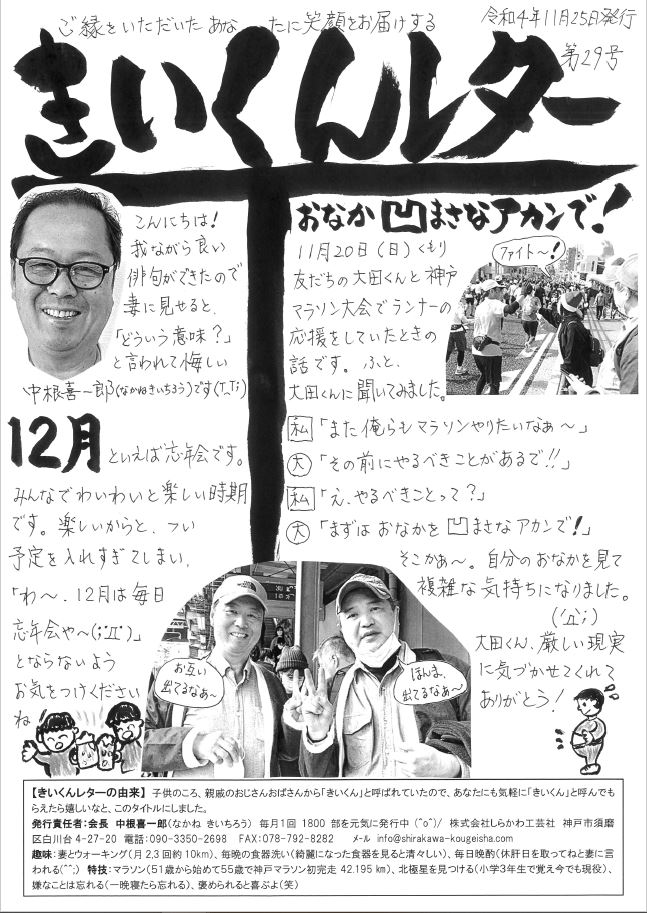 ご縁をいただいたあなたに笑顔をお届けする
令和4年11月25日発行
第29号
きいくんレター
こんにちは!
我ながら良い
俳句ができたので
妻に見せると、
「どういう意味?」
と言われて悔しい
中根喜一郎(なかねきいちろう)です(T_T;)
12月といえば忘年会です。
みんなでわいわいと楽しい時期
です。楽しいからと、つい
予定を入れすぎてしまい、
「わ〜、12月は毎日
忘年会や〜(;'Д')」
とならないよう
お気をつけください
ね!
おなか凹まさなアカンで!
11月20日(日)くもり
友だちの大田くんと神戸
マラソン大会でランナーの
応援をしていたときの
話です。ふと、
大田くんに聞いてみました。
ファイト〜!
私「また俺らもマラソンやりたいなぁ〜」
大「その前にやるべきことがあるで!!」
私「え、やるべきことって?」
大「まずはおなかを凹まさなアカンで!」
そこかぁ〜。自分のおなかを見て
複雑な気持ちになりました。
('Д';)
大田くん、厳しい現実
に気づかせてくれて
ありがとう!
お互い
出てるなぁ〜
ほんま、
出てるなぁ〜
【きいくんレターの由来】子供のころ、親戚のおじさんおばさんから「きいくん」と呼ばれていたので、あなたにも気軽に「きいくん」と呼んでも
らえたら嬉しいなと、このタイトルにしました。
発行責任者:会長 中根喜一郎(なかね きいちろう) 毎月1回 1800 部を元気に発行中 (^o^)/ 株式会社しらかわ工芸社 神戸市須磨
区白川台 4-27-20 電話:090-3350-2698 FAX:078-792-8282 メール info@shirakawa-kougeisha.com
趣味:妻とウオーキング(月 2,3 回約 10km)、毎晩の食器洗い(綺麗になった食器を見ると清々しい)、毎日晩酌(休肝日を取ってねと妻に言
われる(^^;) 特技:マラソン(51歳から始めて55歳で神戸マラソン初完走 42.195 km)、北極星を見つける(小学3年生で覚え今でも現役)、
嫌なことは忘れる(一晩寝たら忘れる)、褒められると喜ぶよ(笑)